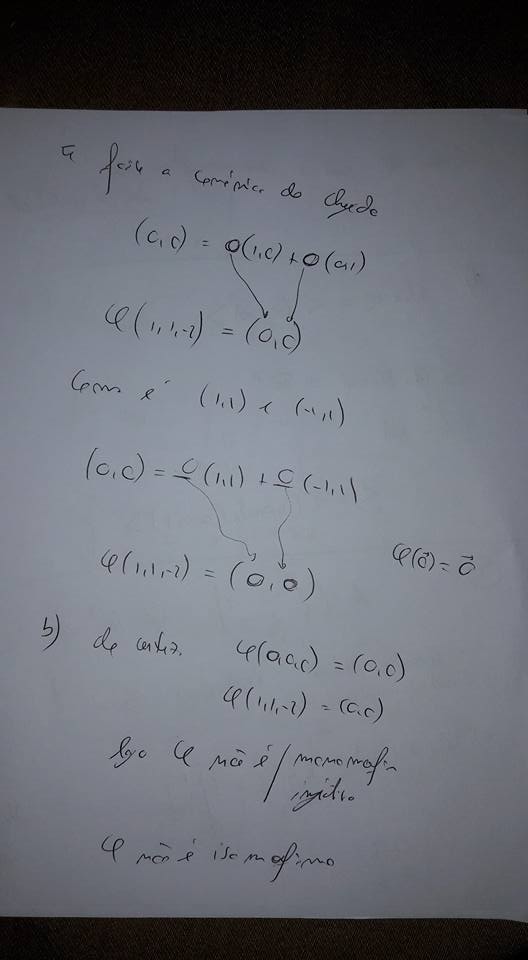 fosse a canónica de chegada
(0,0) = 0(1,0) + 0(0,1)
φ(1,1,-2) = (0,0)
Como é (1,1) e (-1,1)
(0,0) = 0(1,1) + 0(-1,1)
φ(1,1,-2) = (0,0)
φ(0⃗) = 0⃗
b) de certeza φ(0,0,0) = (0,0)
φ(1,1,-2) = (0,0)
logo φ não é / monomorfismo
injetivo
φ não é isomorfismo